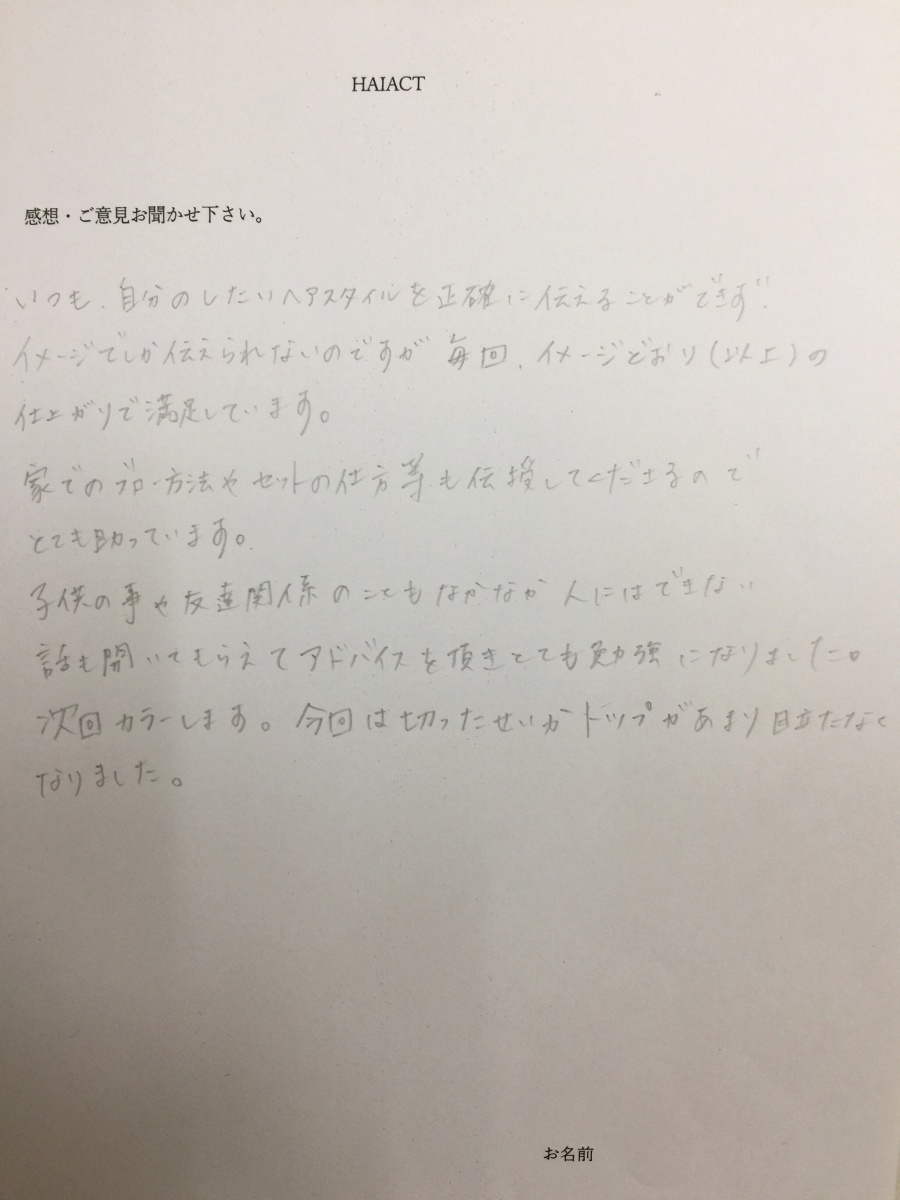 HAIACT
感想・ご意見お聞かせ下さい。
いつも、自分のしたいヘアスタイルを正確に伝えることができず、
イメージでしか伝えられないのですが 毎回、イメージどおり(以上)の
仕上がりで満足しています。
家でのブロー方法やセットの仕方等も伝授してくださるので
とても助っています。
子供の事や友達関係のこともなかなか人にはできない
話も聞いてもらえてアドバイスを頂きとても勉強になりました。
次回カラーします。今回は切ったせいかドップがあまり目立たなく
なりました。
お名前